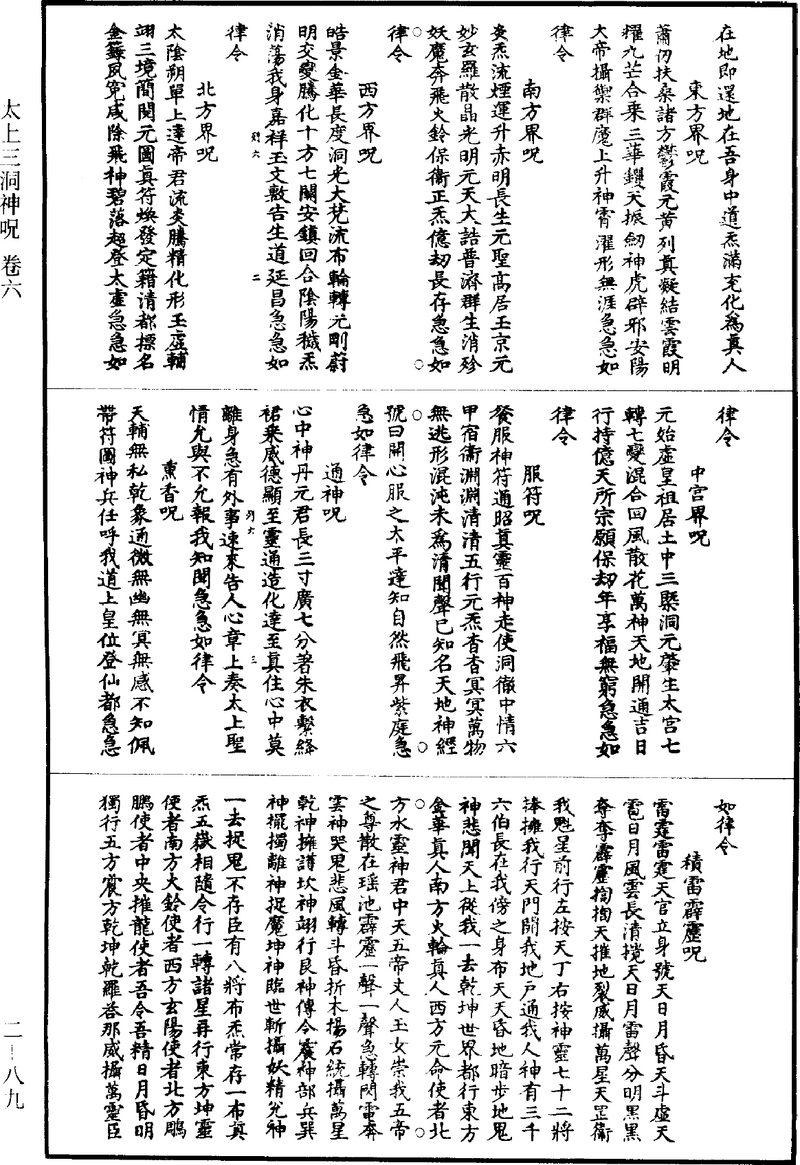 太上三洞神呪　卷六
二—八九
在地即還地在吾身中道炁滿充化為真人
東方界呪
蕭仞扶桑諸方欝霞元黃列真凝結雲霞明
耀九芒合乘三華鑁天振劒神虎辟邪安陽
大帝攝禦群魔上升神霄濯形無涯急急如
律令
南方界呪
炎炁流煙運升赤明長生元聖高居玉京元
妙玄羅散晶光明元天大誥普濟群生消殄
妖魔奔飛火鈴保衛正炁億劫長存急急如
律令
西方界呪
皓景金華長度洞光大梵流布輪轉元剛蔚
明交變騰化十方七闕安鎮回合陰陽穢炁
消蕩我身嘉祥玉文敷告生道延昌急急如
律令
北方界呪
太陰朔單上達帝君流炎騰精化形玉屋輔
翊三境簡閱元圖真符煥發定籍清都標名
金籙夙冤咸除飛神碧落超登太虛急急如
律令
中宮界呪
元始虛皇祖居土中三炁洞元肇生太宮七
轉七變混合回風散花萬神天地開通吉日
行持億天所宗願保劫年享福無窮急急如
律令
服符呪
餐服神符通昭真靈百神走使洞徹中情六
甲宿衛淵淵清清五行元炁杳杳冥冥萬物
無逃形混沌未為清聞聲已知名天地神經
號曰開心服之太平達知自然飛昇紫庭急
急如律令
通神呪
心中神丹元君長三寸廣七分著朱衣繫絳
裙乘威德顯至靈通造化達至真住心中莫
離身急有外事速來告人心章上奏太上聖
情允與不允報我知聞急急如律令
熏香呪
天輔無私乾象通微無幽無冥無感不知佩
帶符圖神兵任呼我道上皇位登仙都急急
如律令
積雷霹靂呪
雷霆雷霆天官立身號天日月昏天斗虛天
雹日月風雲長清攪天日月雷聲分明黑黑
夲夲霹靂掏掏天摧地裂威攝萬星天罡衛
我魁星前行左按天丁右按神靈七十二將
捧擁我行天門開我地戶通我人神有三千
六伯長在我傍之身布天天昏地暗步地鬼
神悲聞天上從我一去乾坤世界都行東方
金華真人南方火輪真人西方元命使者北
方水靈神君中天五帝丈人玉女崇我五帝
之尊散在瑶池霹靂一聲一聲急轉閃雷奔
雲神哭鬼悲風轉斗昏折木揚石統攝萬星
乾神擁護坎神翊行艮神傳令震神部兵巽
神擺擉離神捉魔坤神臨世斬攝妖精兊神
一去捉鬼不存臣有八將布炁常存一布真
炁五嶽相隨令行一轉諸星再行東方坤靈
使者南方大鈴使者西方玄陽使者北方鵰
鵬使者中央摧龍使者吾令吾精日月昏明
獨行五方震方乾坤乾羅苔那威攝萬靈臣